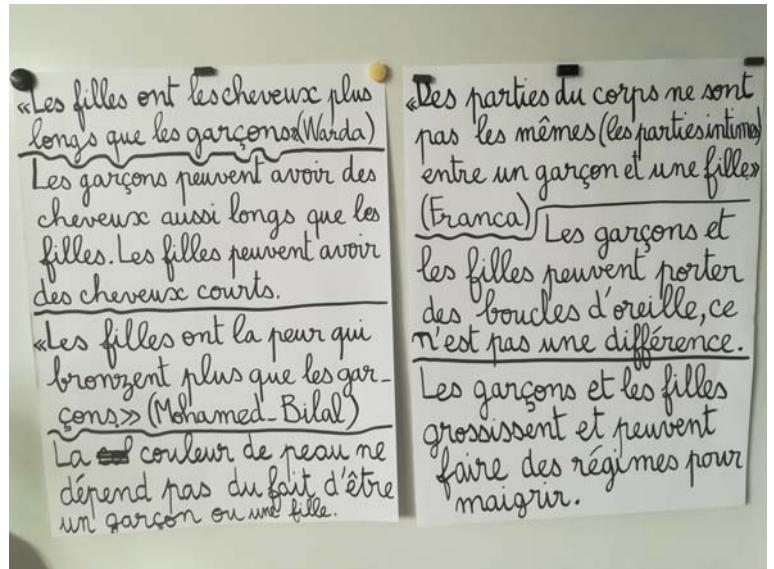 «Les filles ont les cheveux plus
longs que les garçons»(Warda)
Les garçons peuvent avoir des
cheveux aussi longs que les
filles. Les filles peuvent avoir
des cheveux courts.
«Les filles ont la peur qui
bronzent plus que les gar-
çons.» (Mohamed-Bilal)
La couleur de peau ne
dépend pas du fait d'être
un garçon ou une fille.
«Des parties du corps ne sont
pas les mêmes (les parties intimes)
entre un garçon et une fille»
(Franca) Les garçons et
les filles peuvent porter
des boucles d'oreille, ce
n'est pas une différence.
Les garçons et les filles
grossissent et peuvent
faire des régimes pour
maigrir.